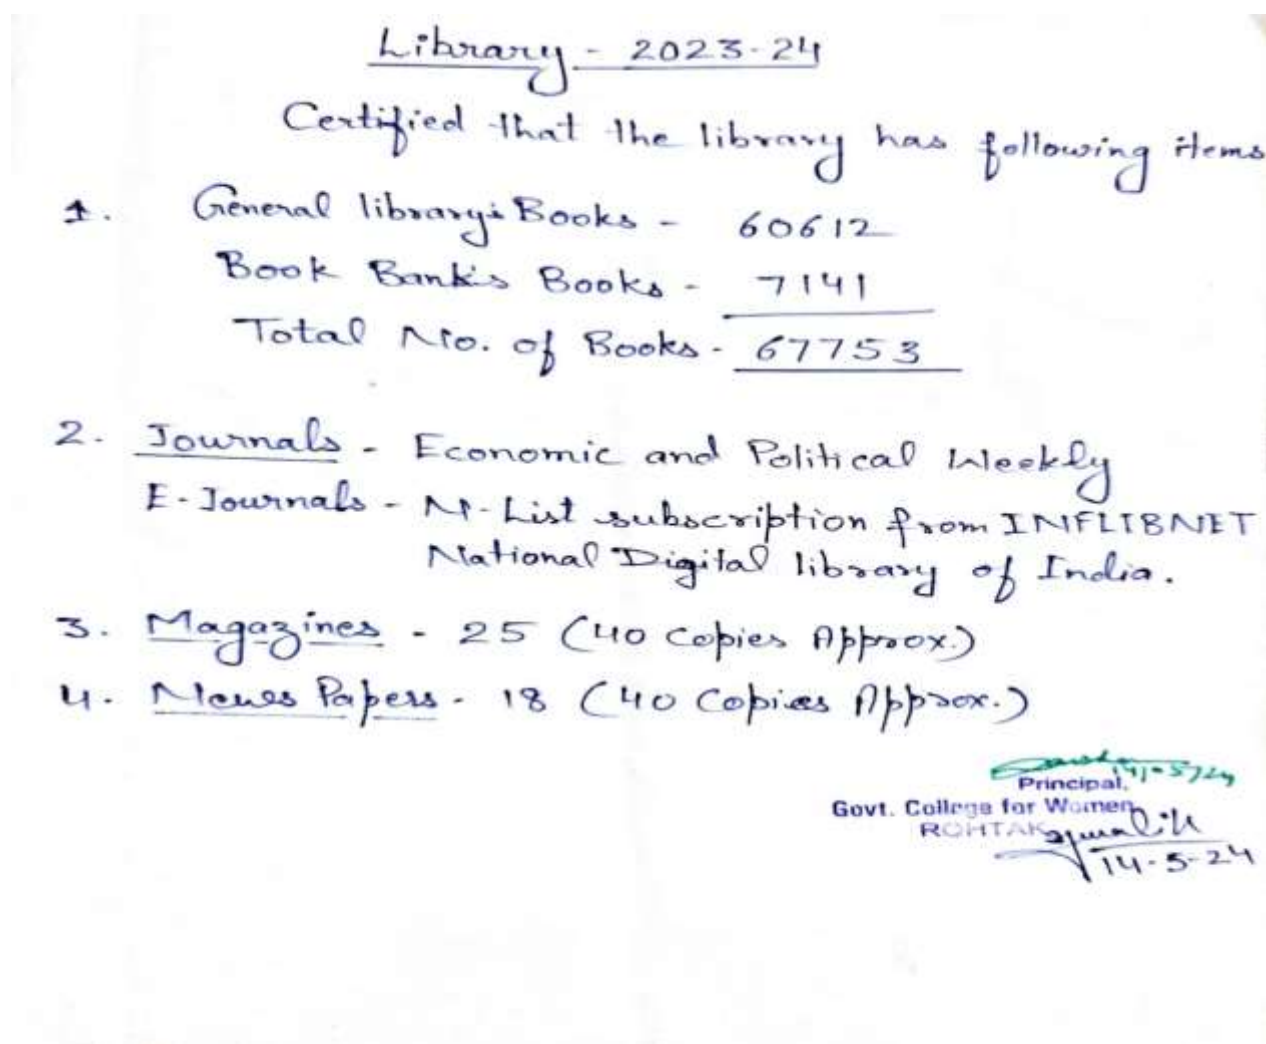 Library - 2023-24
Certified that the library has following items
1. General library's Books - 60612
Book Bank's Books - 7141
Total No. of Books - 67753
2. Journals - Economic and Political Weekly
E-Journals - N-List subscription from INFLIBNET
National Digital library of India.
3. Magazines - 25 (40 Copies Approx.)
4. News Papers - 18 (40 Copies Approx.)
14-5-24
Principal,
Govt. College for Women
ROHTAK
14-5-24